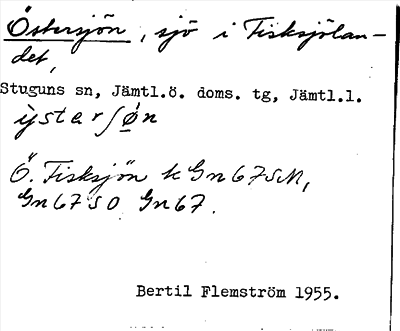 Östersjön, sjö i Fisksjölan-
det,
Stuguns sn, Jämtl.ö. doms. tg, Jämtl.l.
ỳstarſø̀n
Ö. Fisksjön k Gn 67 SM,
Gn 67 SO Gn 67.
Bertil Flemström 1955.